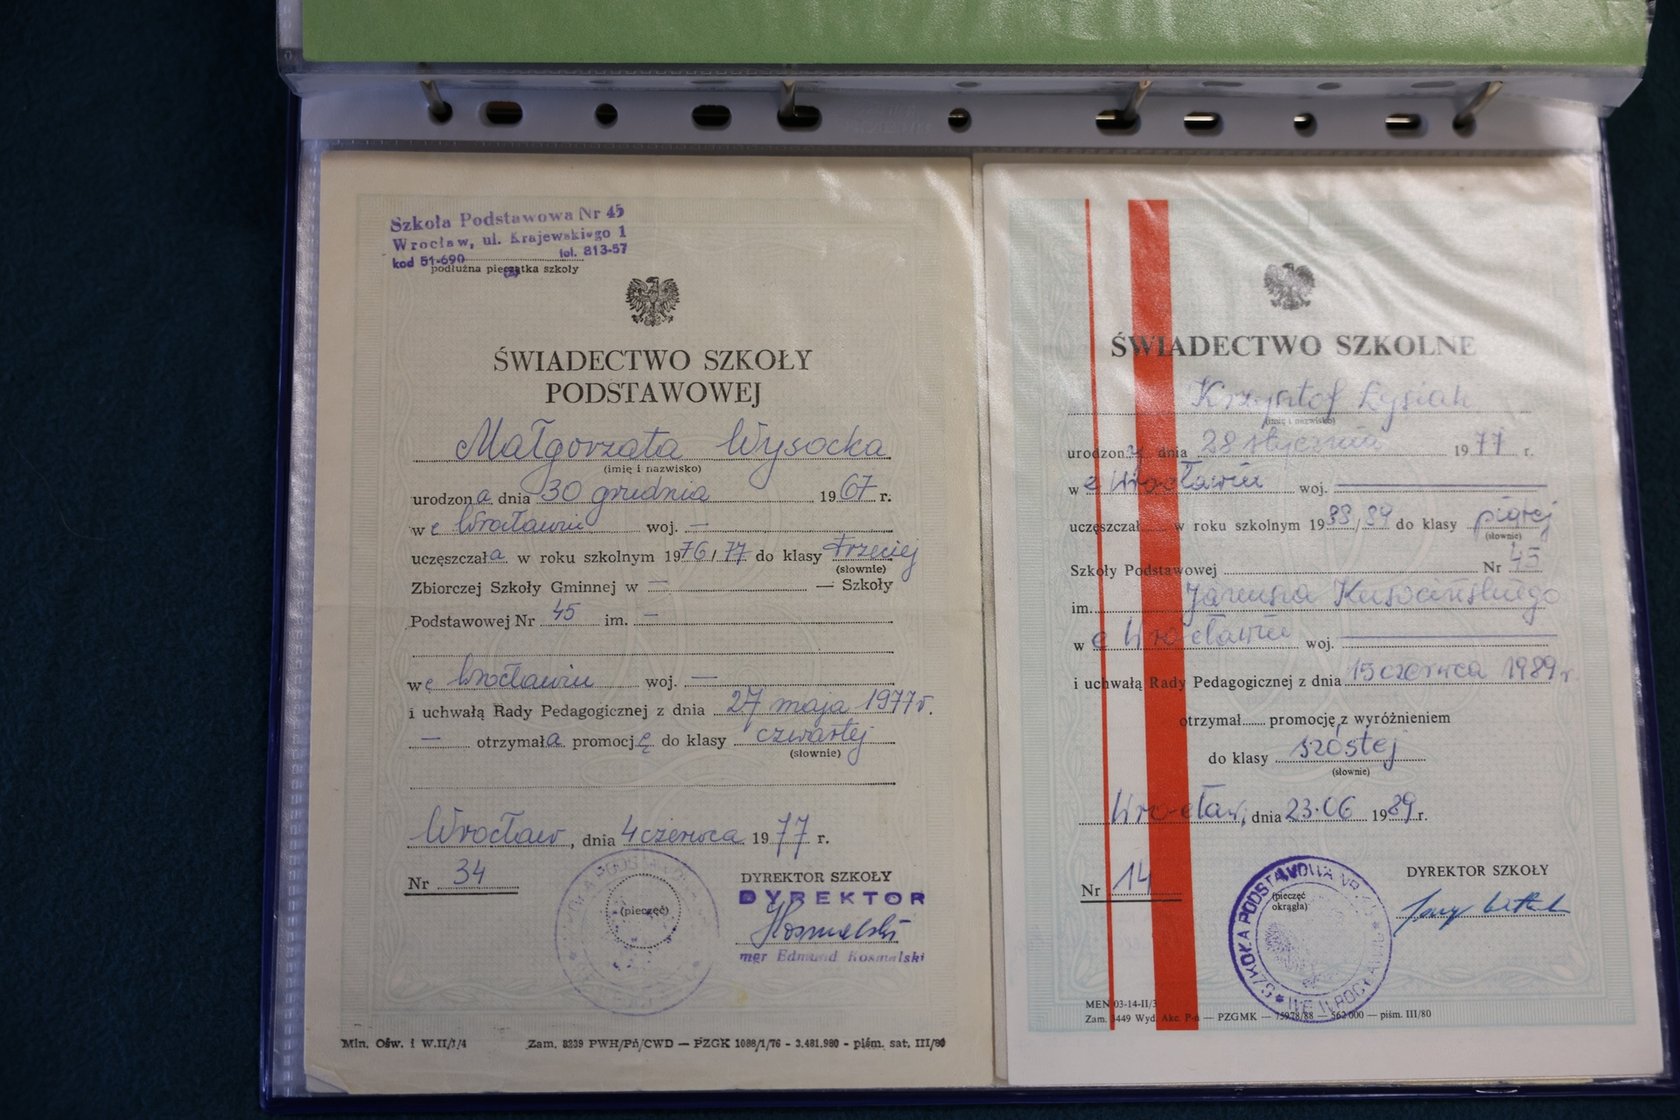 Szkoła Podstawowa Nr 45
Wrocław, ul. Krajewskiego 1
kod 51-690 tel. 813-57
podłużna pieczątka szkoły
ŚWIADECTWO SZKOŁY
PODSTAWOWEJ
Małgorzata Wysocka
(imię i nazwisko)
urodzona dnia 30 grudnia 1967 r.
we Wrocławiu woj. —
uczęszczała w roku szkolnym 1976/77 do klasy trzeciej
(słownie)
Zbiorczej Szkoły Gminnej w — — Szkoły
Podstawowej Nr 45 im. —
we Wrocławiu woj. —
i uchwałą Rady Pedagogicznej z dnia 27 maja 1977 r.
— otrzymała promocję do klasy czwartej
(słownie)
Wrocław, dnia 4 czerwca 1977 r.
Nr 34
(pieczęć)
DYREKTOR SZKOŁY
DYREKTOR
mgr Edmund Kosmalski
Min. Ośw. i W.II/1/4 Zam. 8239 PWH/Pń/CWD — PZGK 1088/1/76 - 3.481.980 - piśm. sat. III/80
ŚWIADECTWO SZKOLNE
Krzysztof Łysiak
(imię i nazwisko)
urodzony dnia 28 stycznia 1977 r.
we Wrocławiu woj.
uczęszczał w roku szkolnym 1988/89 do klasy piątej
(słownie)
Szkoły Podstawowej Nr 45
im. Janusza Kusocińskiego
we Wrocławiu woj.
i uchwałą Rady Pedagogicznej z dnia 15 czerwca 1989 r
otrzymał promocję z wyróżnieniem
do klasy szóstej
(słownie)
Wrocław, dnia 23.06 1989 r.
Nr 14
(pieczęć
okrągła)
SZKOŁA PODSTAWOWA NR 45 WE WROCŁAWIU
DYREKTOR SZKOŁY
MEN 03-14-II/3
Zam. 3449 Wyd. Akc. P-ń — PZGMK — 75978/88 — 562 000 — piśm. III/80